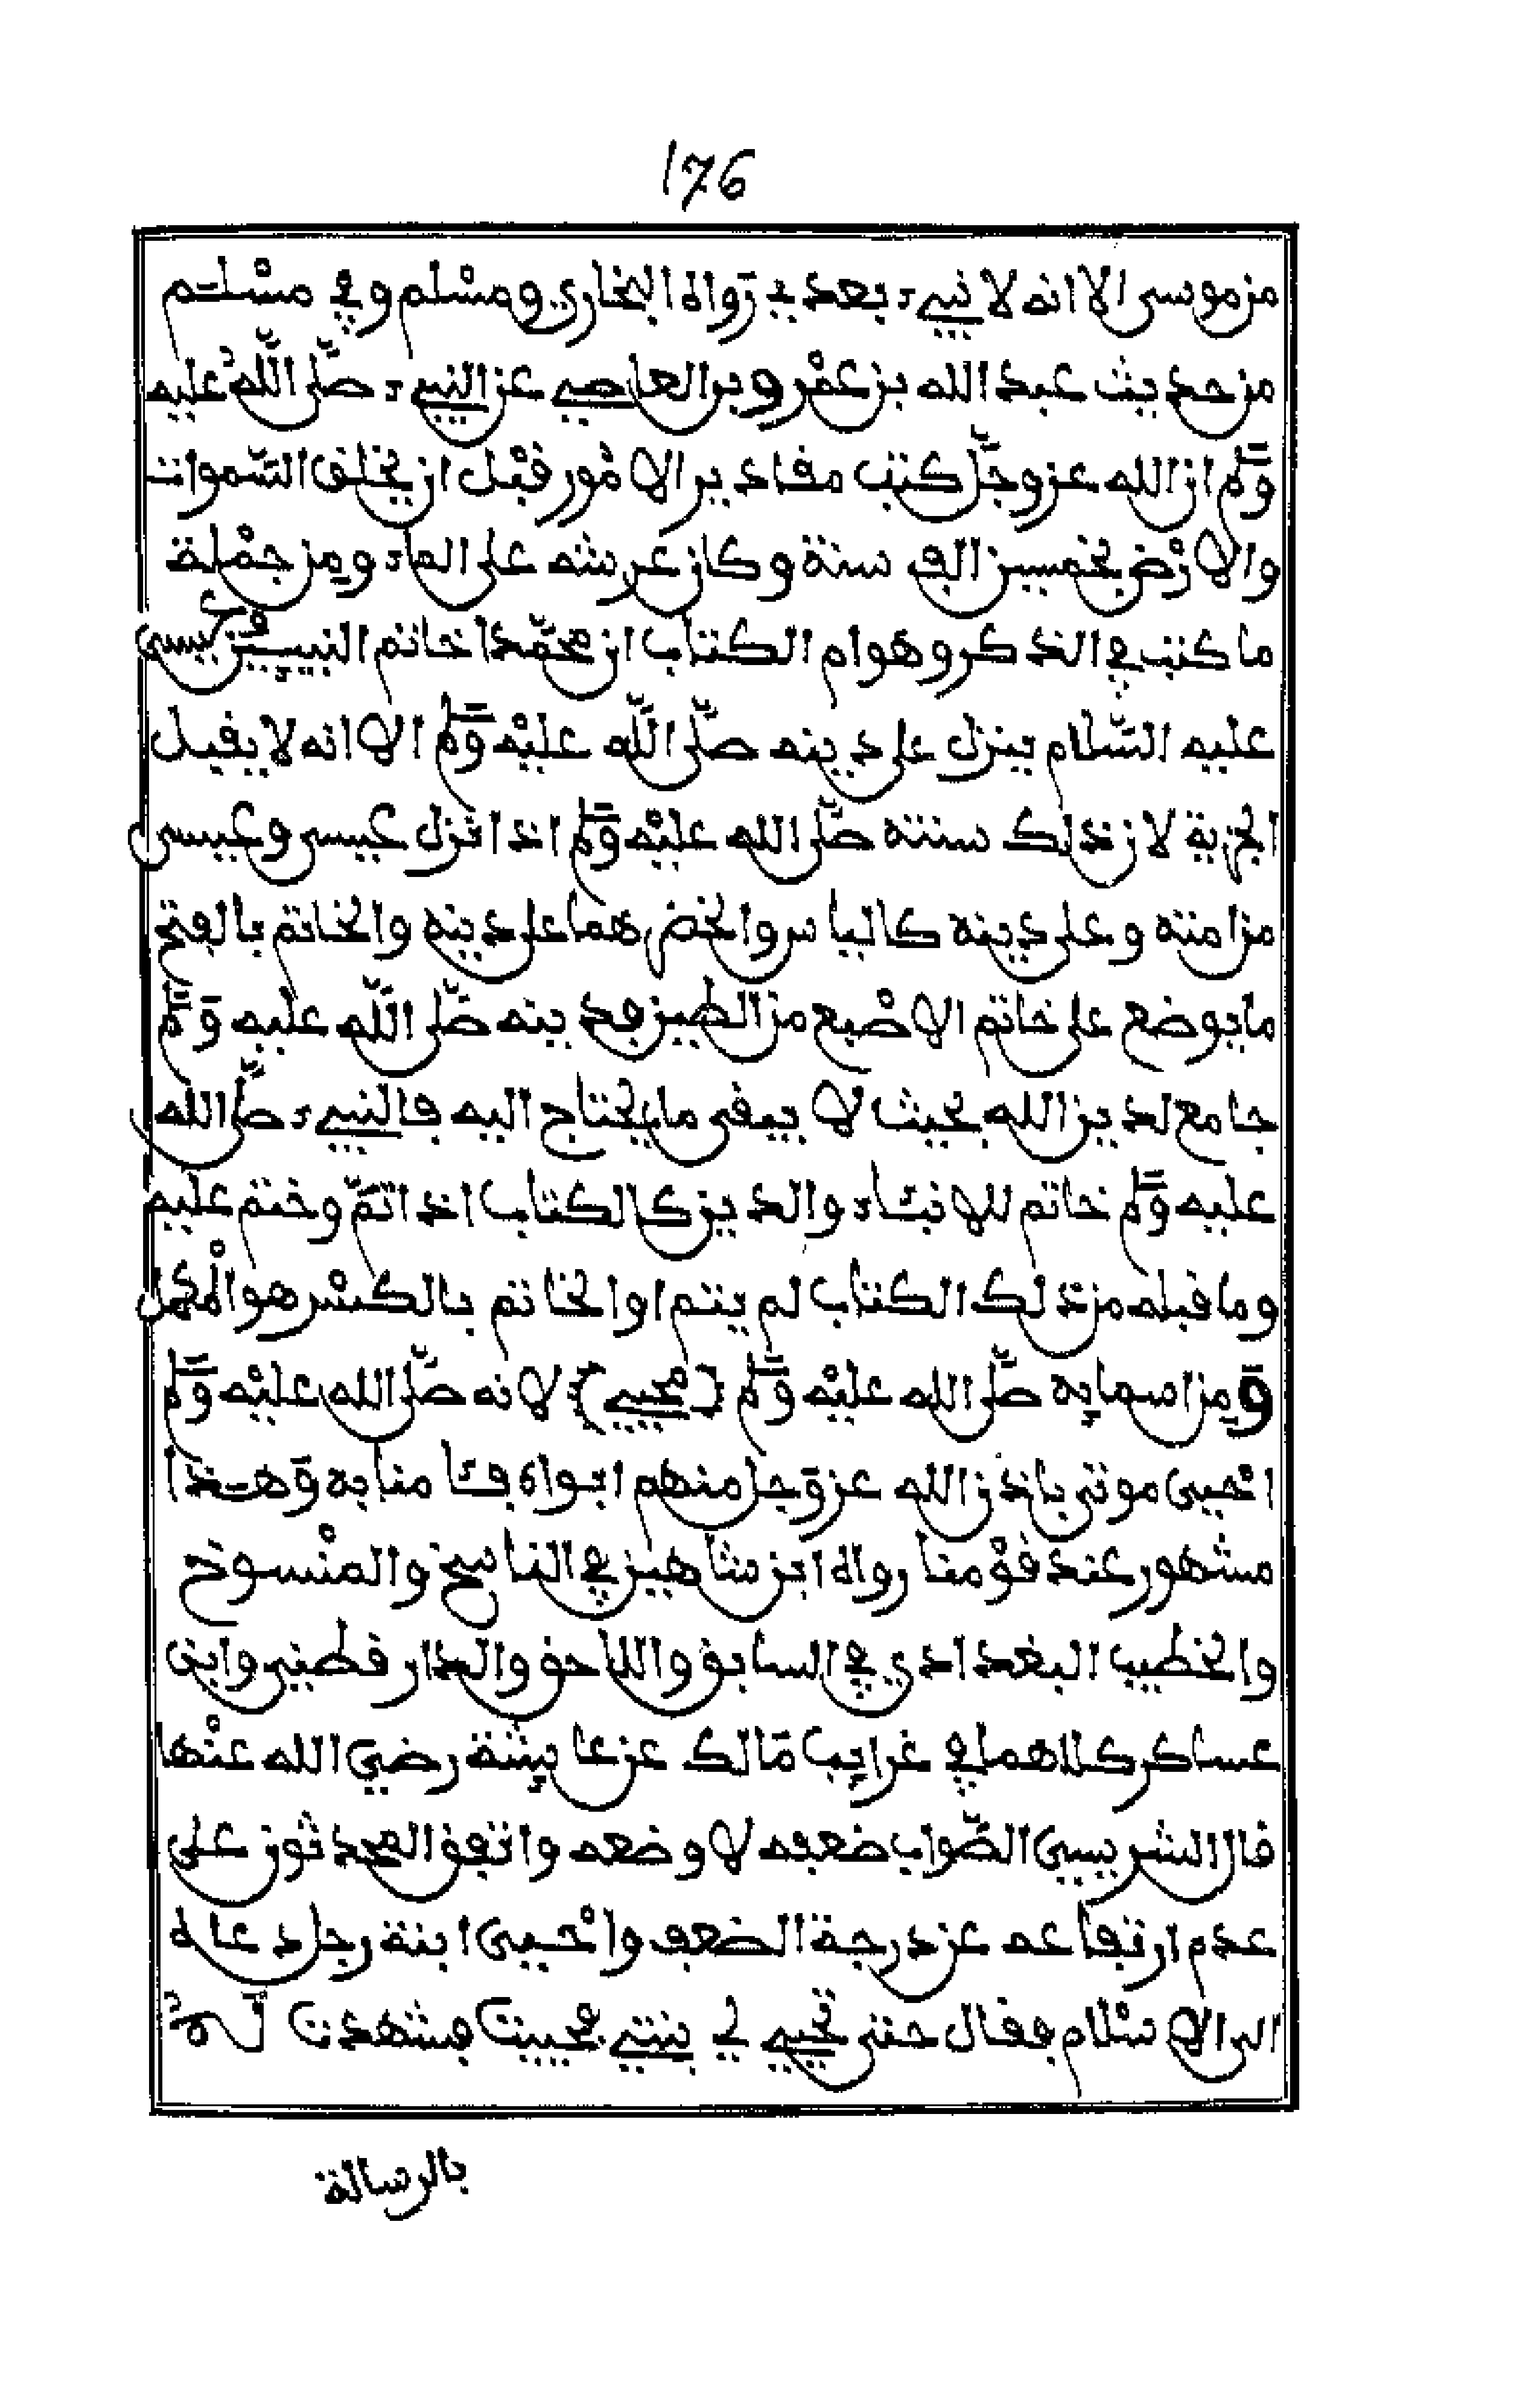 176
من موسى الا انه لا نبيء بعدي رواه البخاري ومسلم وفي مسلم
من حديث عبد الله بن عمرو بن العاصي عن النبيء صلى الله عليه
وسلم ان الله عز وجل كتب مقادير الامور قبل ان يخلق السموات
والارض بخمسين الف سنة وكان عرشه على الماء ومن جملة
ما كتب في الذكر وهو ام الكتاب ان محمدا خاتم النبيين فعيسى
عليه السلام ينزل على دينه صلى الله عليه وسلم الا انه لا يقبل
الجزية لان ذلك سنته صلى الله عليه وسلم اذا نزل عيسى وعيسى
من امته وعلى دينه كالياس والخضر هما على دينه والخاتم بالفتح
ما يوضع على خاتم الاصبع من الطين فدينه صلى الله عليه وسلم
جامع لدين الله بحيث لا يبقى ما يحتاج اليه فالنبيء صلى الله
عليه وسلم خاتم للانبئاء والدين كالكتاب اذا تم وختم عليه
وما قبله من ذلك الكتاب لم يتم والخاتم بالكسر هو المكمل
ومن اسمايه صلى الله عليه وسلم (محيي) لانه صلى الله عليه وسلم
احيى موتى باذن الله عز وجل منهم ابواه فئامنا به وهذا
مشهور عند قومنا رواه ابن شاهين في الناسخ والمنسوخ
والخطيب البغدادي في السابق واللاحق والدارقطني وابن
عساكر كلاهما في غرايب مالك عن عايشة رضي الله عنها
قال الشريسى الصواب ضعفه لا وضعه واتفق المحدثون على
عدم ارتفاعه عن درجة الضعف واحيى ابنة رجل دعاه
الى الاسلام فقال حتى تحيي لي بنتي فحييت فشهدت له
بالرسالة